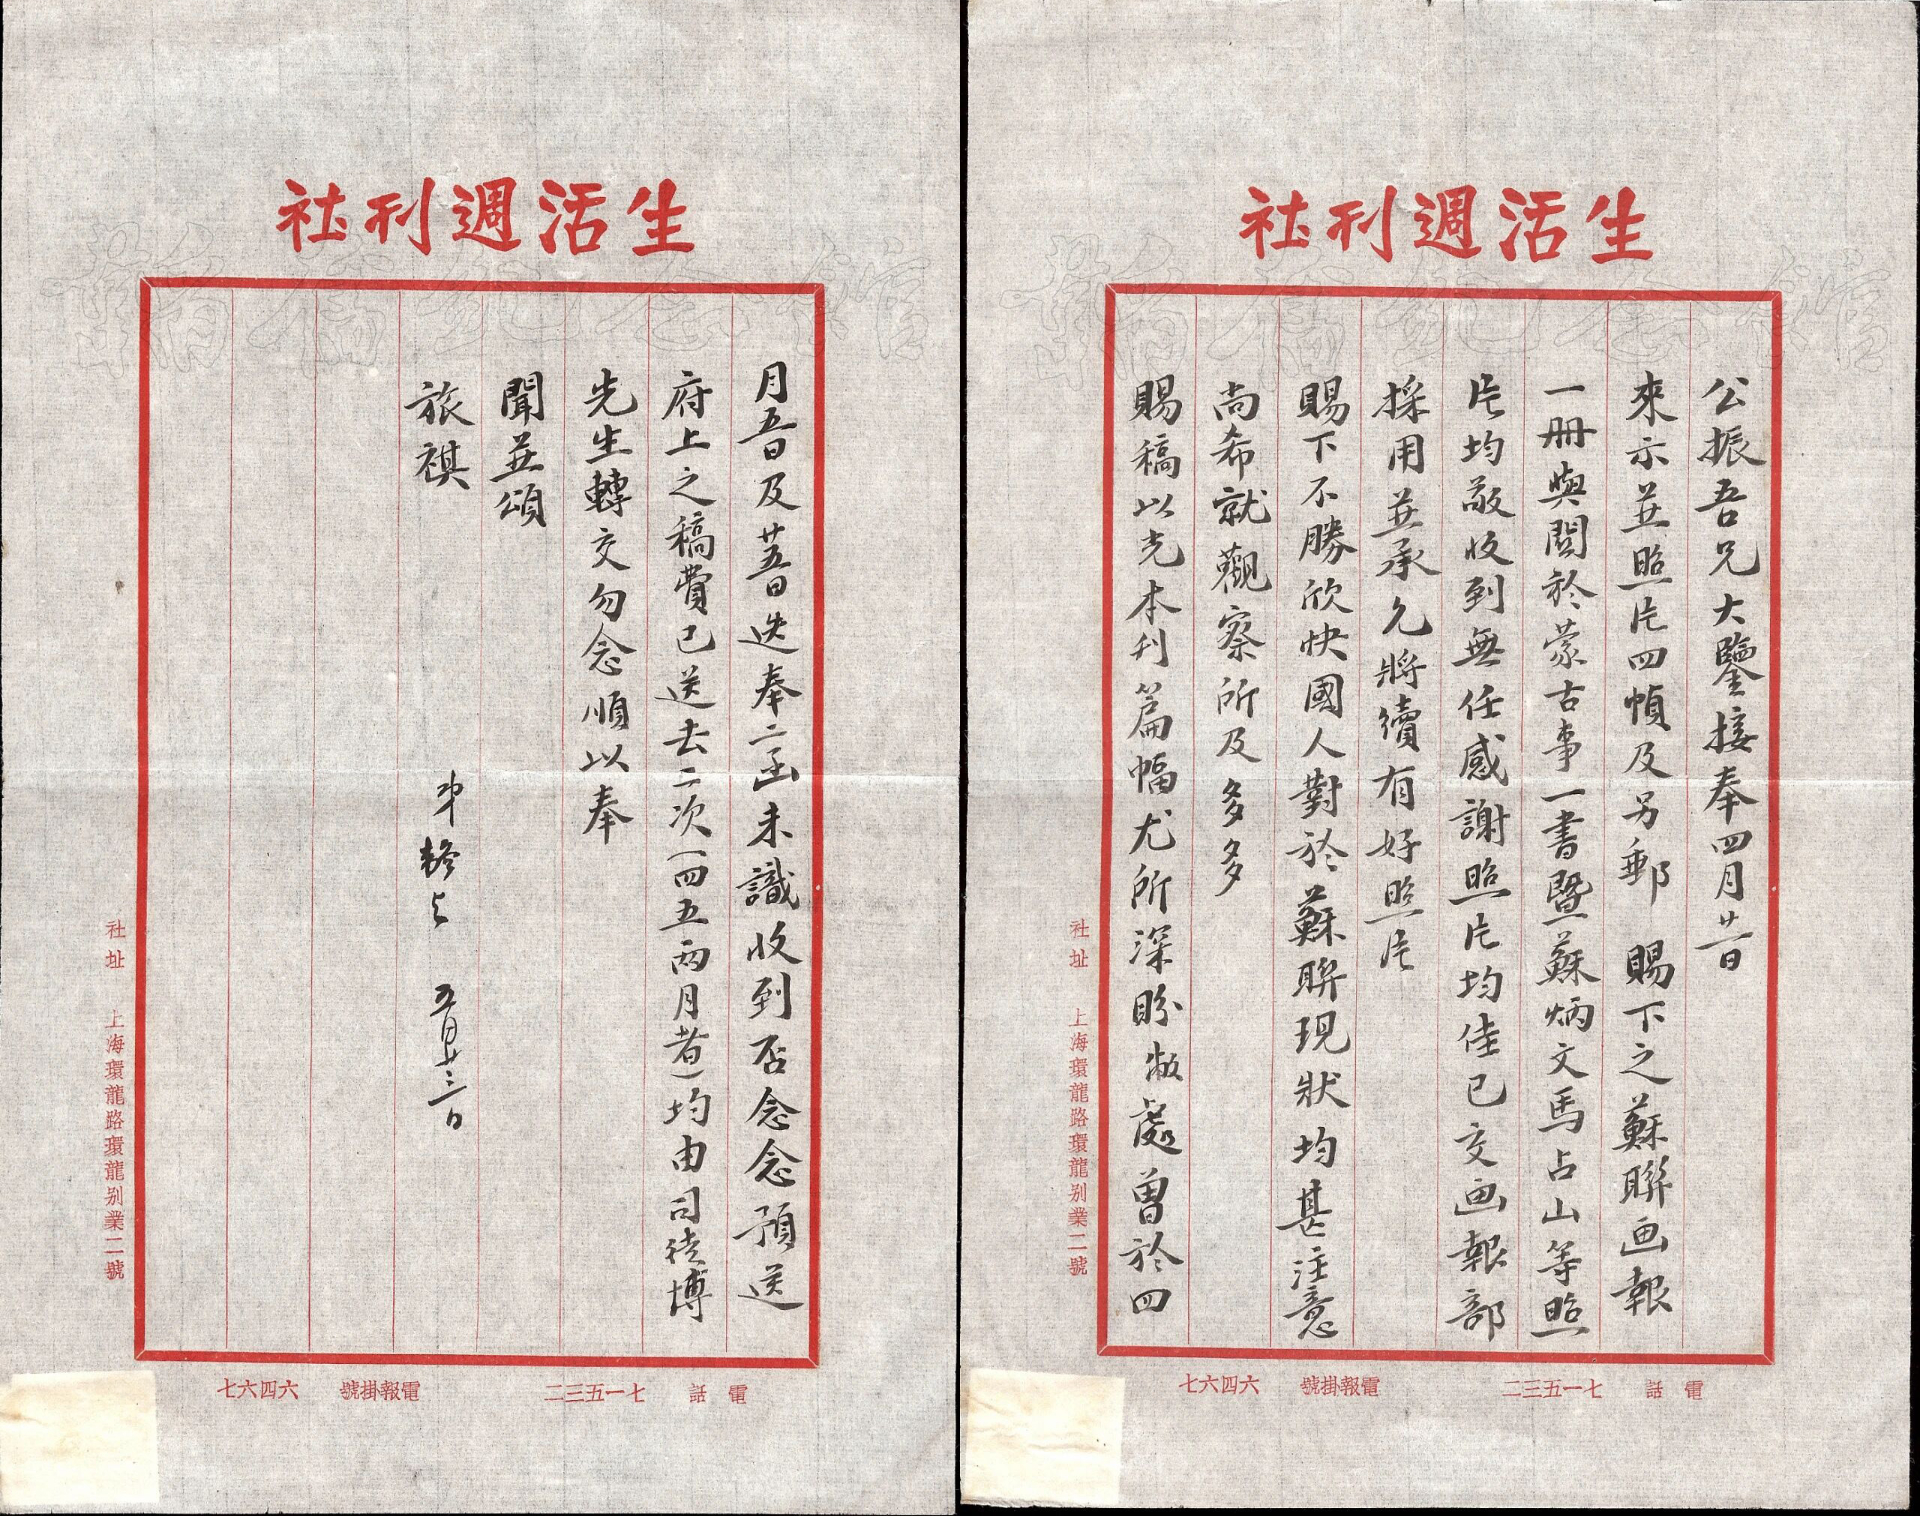 生活週刊社
公振吾兄大鑒接奉四月廿日
來示並照片四幀及另郵 賜下之蘇聯画報
一冊與關於蒙古事一書暨蘇炳文馬占山等照
片均敬收到無任感謝照片均佳已交画報部
採用並承允將續有好照片
賜下不勝欣快國人對於蘇聯現狀均甚注意
尚希就觀察所及多多
賜稿以光本刊篇幅尤所深盼敝處曾於四
社址 上海環龍路環龍别業二號
電話 七一五三二 電報掛號 六四六七
生活週刊社
月五日及廿五日迭奉二函未識收到否念念預送
府上之稿費已送去二次(四五兩月者)均由司徒博
先生轉交勿念順以奉
聞並頌
旅祺
弟 上 五月廿三日
社址 上海環龍路環龍别業二號
電話 七一五三二 電報掛號 六四六七